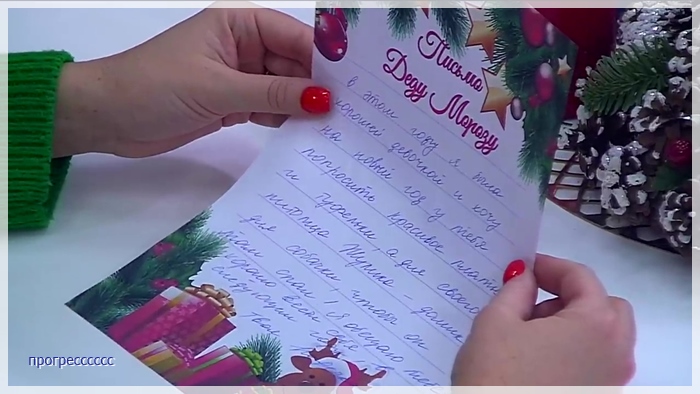 Письмо
Деду Морозу
в этом году я была
хорошей девочкой и хочу
на новый год у тебя
попросить красивое плать
и туфельки, а для своего
питомца Тузика - домик
для собаки, чтобы он
там спал! Я обещаю
весь
следующий год
прогресссссс